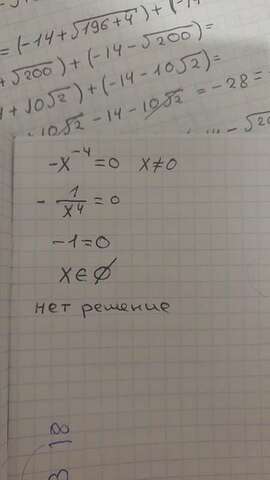 = (-14 + √196+4) + (-14
+ √200) + (-14 - √200) =
+ 10√2) + (-14 - 10√2) =
10√2 - 14 - 10√2 = -28 =
- x⁻⁴ = 0 x ≠ 0
- 1/x⁴ = 0
- 1 = 0
x ∈ ∅
нет решение